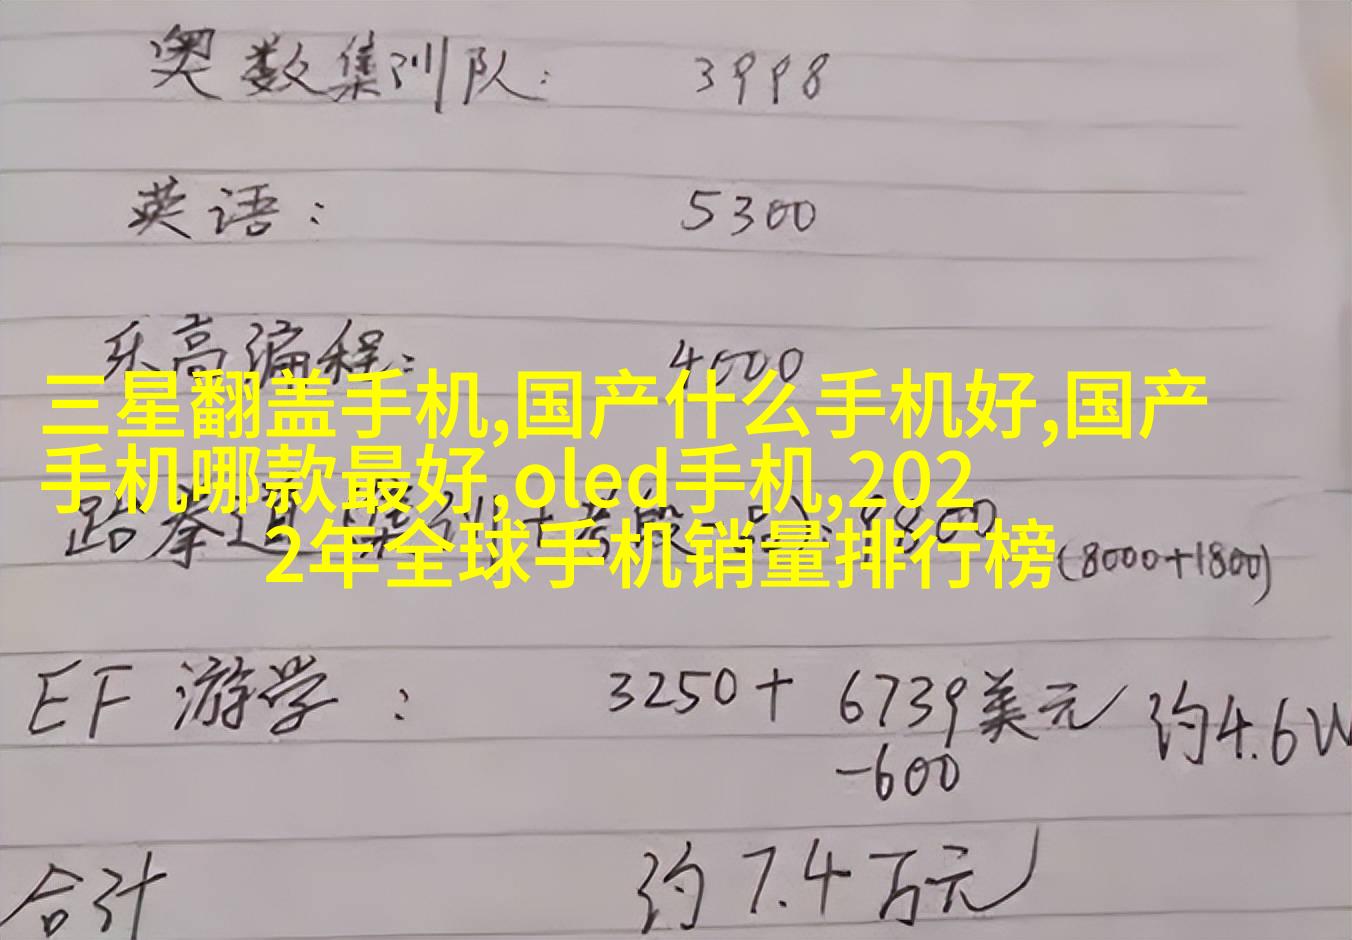 奥数集训队: 3998
英语: 5300
乐高编程: 4000
三星翻盖手机,国产什么手机好,国产
手机哪款最好,oled手机,202
2年全球手机销量排行榜
跆拳道(集训+考段 9800
(8000+1800)
EF 游学: 3250+6739美元 约4.6W
-600
合计 约7.4万元